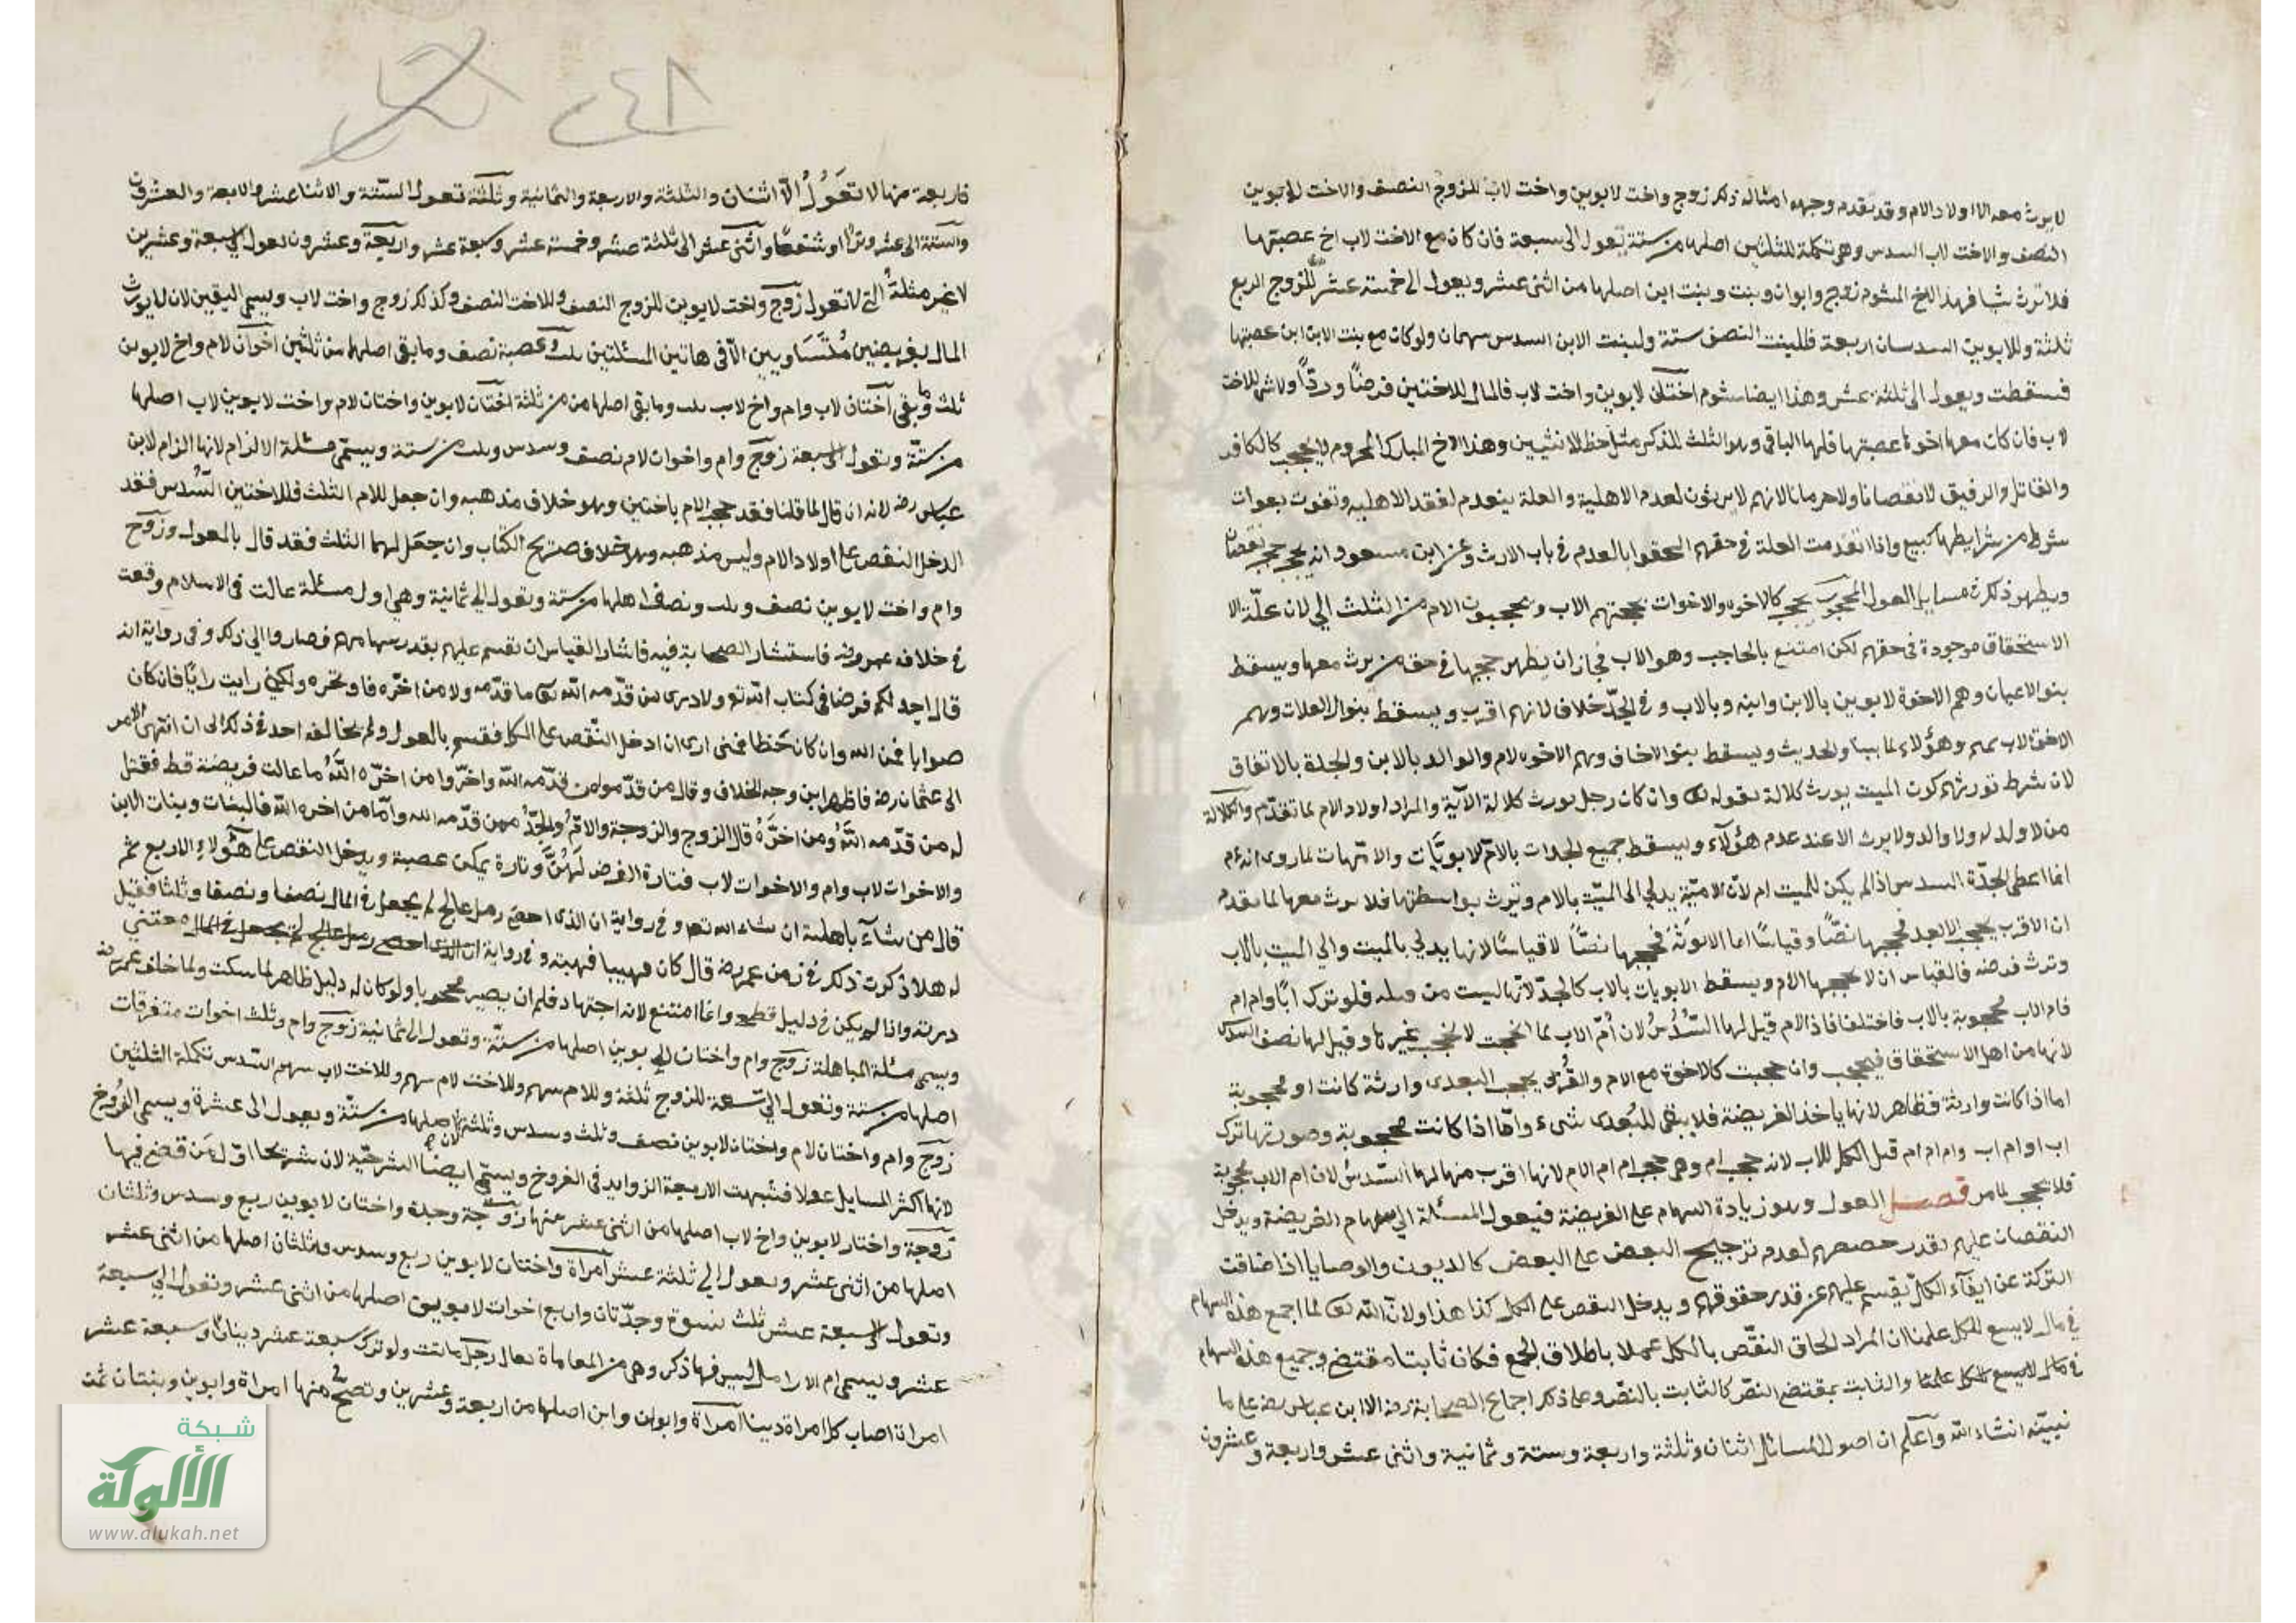 لا يرث معه الا اولاد الام وقد تقدم وجهه امثاله ذلك زوج واخت لابوين واخت لاب للزوج النصف والاخت للابوين
النصف والاخت لاب السدس وهو تكملة للثلثين اصلها من ستة تعول الى سبعة فان كان مع الاخت لاب اخ عصبتها
فلا ترث شيا فهذا الاخ المشوم زوج وابوان وبنت وبنت ابن اصلها من اثنى عشر ويعول الى خمسة عشر للزوج الربع
ثلثة وللابوين السدسان اربعة فللبنت النصف ستة ولبنت الابن السدس سهمان ولو كان مع بنت الابن ابن عصبتها
فسقطت ويعول الى ثلثة عشر وهذا ايضا مشوم اختان لابوين واخت لاب فالمال للاختين فرضًا وردًّا ولا شى للاخت
لاب فان كان معها اخوها عصبتها فلها الباقى وهو الثلث للذكر مثل حظ الانثيين وهذا الاخ المبارك المحروم لا يحجب كالكافر
والقاتل والرقيق لا نقصانا ولا حرمانا لانهم لا يرثون لعدم الاهلية والعلة ينعدم لفقد الاهليه وتفوت بفوات
شرط من شرايطها كبيع واذا انعدمت العلة فى حقهم التحقوا بالعدم فى باب الارث وعن ابن مسعود انه يحجب حجب نقصان
ويظهر ذلك فى مسايل العول المحجوب يحجب كالاخوه والاخوات يحجبهم الاب ويحجبون الام من الثلث الى لان علّة الا
الاستحقاق موجودة فى حقهم لكن امتنع بالحاجب وهو الاب فجاز ان يظهر حجبها فى حق من يرث معها ويسقط
بنو الاعيان وهم الاخوة لابوين بالابن وابنه وبالاب وفى الجدّ خلاف لانهم اقرب ويسقط بنوا العلات وهم
الاخوة لاب بهم وهؤلاء لما بينا والحديث ويسقط بنو الاخاف وهم الاخوه لام والوالد بالابن والجد بالاتفاق
لان شرط توريثهم كون الميت يورث كلالة بقوله تع وان كان رجل يورث كلالة الآية والمراد اولاد الام لما تقدّم والكلالة
من لا ولد له ولا والد ولا يرث الا عند عدم هؤلآء ويسقط جميع الجدات بالامّ الابويَّات والامّهات لما روى انه ءم
انما اعطى الجدّة السدس اذا لم يكن للميت ام لانّ الاميّة يدلي الى الميّت بالام وترث بواسطتها فلا يرث معها لما تقدم
ان الاقرب يحجب الابعد فحجبها نصًّا وقياسًا اما الابويّة فحجبها نصًّا لا قياسًا لانها يدلي بالميت والي الميت بالاب
وترث فرضه فالقياس ان لا يحجبها الام ويسقط الابويات بالاب كالجدّ لانّها ليست من قبله فلو ترك ابًا وام ام
فام الاب محجوبة بالاب فاختلفا فاذ الام قيل لها السُّدُسُ لان اُمّ الاب لما انحجبت لا تحجب غيرها وقيل لها نصف السدس
لانها من اهل الاستحقاق فيحجب وان حجبت كالاخوة مع الام والقُربى يحجب البعدى وارثة كانت او محجوبة
اما اذا كانت وارثة فظاهر لانها ياخذ الفريضة فلا يبقى للبُعدى شىء وامّا اذا كانت محجوبة وصورتها ترك
اب او ام اب وام ام ام قيل الكل للاب لانه حجب ام وهى حجبت ام ام الام لانها اقرب منها لها السّدسُ لان ام الاب محجوبة
فلا يحجب لما مر فصـــل العول وهو زيادة السهام على الفريضة فيعول المسئلة الى سهام الفريضة ويدخل
النقصان عليهم بقدر حصصهم لعدم ترجيح البعض على البعض كالديون والوصايا اذا ضاقت
التركة عن ايفآء الكل يقسم عليهم عن قدر حقوقهم ويدخل النقص على الكل كذا هذا ولانّ الله تعا لما اجمع هذه السهام
فى مال لا يسع للكل علمنا ان المراد الحاق النقص بالكل عملا باطلاق الجمع فكان ثابتا مقتضى وجميع هذه السهام
فى مال لا يسع للكل علمنا والثابت بمقتضى النصّ كالثابت بالنصّ وعلى ذلك اجماع الصحابة رضه الا ابن عباس رضه على ما
نبيّنه انشاء الله وآعلم ان اصول المسائل اثنان وثلثة واربعة وستة وثمانية واثنى عشر واربعة وعشرون
٢٤٨
فاربعة منها لا تَعُولُ الّا اثنان والثلثة والاربعة والثمانية وثلثة تعول السّتة والاثنا عشر والاربعة والعشرون
والستة الى عشر وترًا وشفعًا واثنى عشر الى ثلثة عشر وخمسة عشر وسبعة عشر واربعة وعشرون يعول الى سبعة وعشرين
لا غير مثلةُ التى لا تعول زوج واخت لابوين للزوج النصف وللاخت النصف وكذلك زوج واخت لاب ويسمى اليقين لان لا يورث
المال بفريضين مُتَسَاويين الّا فى هاتين المسئلتين بنت وعصبة نصف وما بقى اصلها من ثلثين اخوان لام واخ لابوين
ثلث وما بقى آختان لاب وام واخ لاب ثلث وما بقى اصلها من من ثلثة اختان لابوين واختان لام واخت لابوين لاب اصلها
من ستّة وتعول الى سبعة زوج وام واخوات لام نصف وسدس وثلث من ستة ويسمّى مسئلة الالزام لانها الزام لابن
عباس رضه لانه ان قال لما قلنا فقد حجب الام باختين وهو خلاف مذهبه وان جعل للام الثلث فللاختين السُّدس فقد
ادخل النقص على اولاد الام وليس مذهبه وهو خلاف صريح الكتاب وان جعل لهما الثلث فقد قال بالعول وزوج
وام واخت لابوين نصف وثلث ونصف اصلها من ستة وتعول الى ثمانية وهى اول مسئلة عالت فى الاسلام وقعت
فى خلافه عمر رضه فاستشار الصحابة فيه فاشار القياس ان تقسم عليهم بقدر سهامهم فصاروا الى ذلك وفى رواية انه
قال اجد لكم فرضا فى كتاب الله تع ولا درى من قدّمه الله تعا ما قدّمه ولا من اخّره فاوخره ولكنى رايت رايًا فان كان
صوابا فمن الله وان كان خطا فمنى ارى ان ادخل النّقص على الكل فقسم بالعول ولم يخالفه احد فى ذلك الى ان انتهى الامر
الى عثمان رضه فاظهر ابن وجه الخلاف وقال من قدّموا من قدّمه الله واخّروا من اخّره اللهُ ما عالت فريضة قط فقيل
له من قدّمه اللهُ ومن اخّرَهُ قال الزوج والزوجة والامّ والجدّ ممن قدّمه الله وامّا من اخره الله فالبنات وبنات الابن
والاخوات لاب وام والاخوات لاب فتارة الفرض لَهُنَّ وتارة يمكن عصبة ويدخل النقص على هؤلاءِ الاربع ثم
قال من شآء باهلته ان شاء الله تعا وفى رواية ان الذى احصى رمل عالج لم يجعل فى المال نصفا ونصفا وثلثا فقيل
له هلا ذكرت ذلك فى زمن عمر رضه قال كان مهيبا فهبته وفى رواية ان الذى احصى رمل عالج لم يجعل فى المال منعتني
درته واذا لم يكن فى دليل قطعى وانما امتنع لانه اجتهاد فلم ان يصير محجوبا ولو كان له دليل ظاهر لما سكت ولما خاف عمر رضه
ويسمى مسئلة المباهلة زوج وام واختان لابوين اصلها من ستّة وتعول الى ثمانية زوج وام وثلث اخوات متفرقات
اصلها من ستة وتعول الى تسعة للزوج ثلثة وللام سهم وللاخت لام سهم وللاخت لاب سهم السّدس تكملة الثلثين
زوج وام واختان لام واختان لابوين نصف وثلث وسدس وثلثان اصلها من ستّة ويعول الى عشرة ويسمى الفُروخ
لانها اكثر المسايل عولا فشبهت الاربعة الزوايد فى الفروخ ويسمّى ايضًا الشريحيّة لان شريحا اوّل مَن قضى فيها
زوجة واختان لابوين واخ لاب اصلها من اثنى عشر منها زوجة وجدة واختان لابوين ربع وسدس وثلثان
اصلها من اثنى عشر ويعول الى ثلثة عشر امرآة واختان لابوين ربع وسدس وثلثان اصلها من اثنى عشر
وتعول الى سبعة عشر ثلث نسوة وجدّتان واربع اخوات لابوين اصلها من اثنى عشر وتعول الى سبعة
عشر ويسمى ام الارامل اليس فيها ذكر وهى من المعاماة يقال رجل مات ولو ترك سبعة عشر دينارا وسبعة عشر
امراة اصاب كل امراة دينار آمرآة وابوان وابن اصلها من اربعة وعشرين وتصحّ منها امراة وابوين وبنتان ثمن
شبكة
الألوكة
www.alukah.net